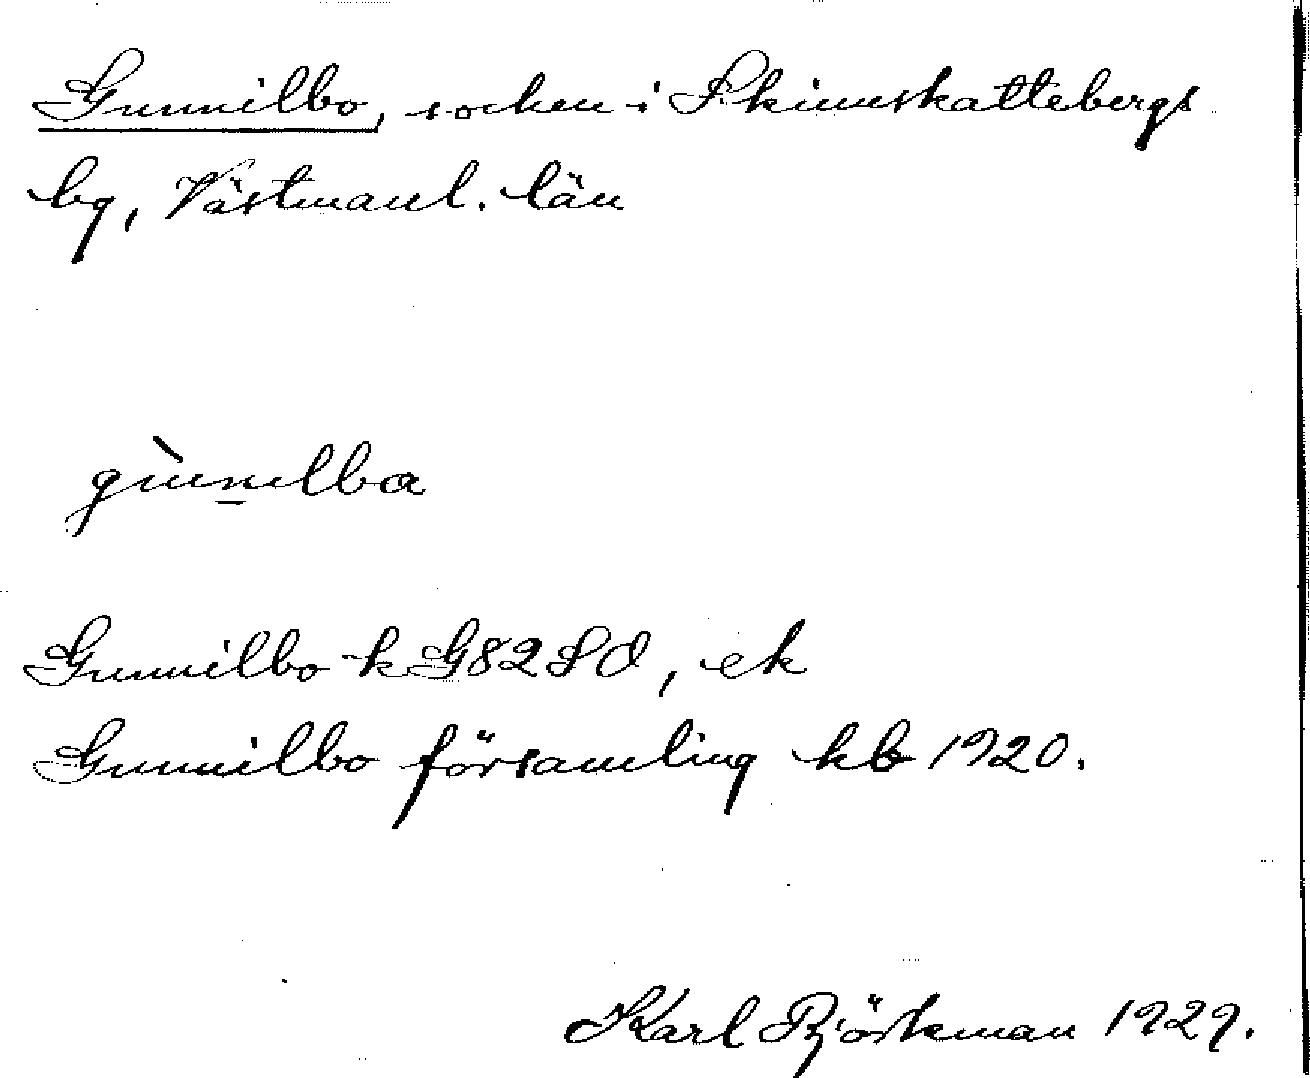 Gunnilbo, socken i Skinnskattebergs
bg, Västmanl. län
gùnilba
Gunnilbo k G82SO, ek
Gunnilbo församling kb 1920.
Karl Björkman 1929.